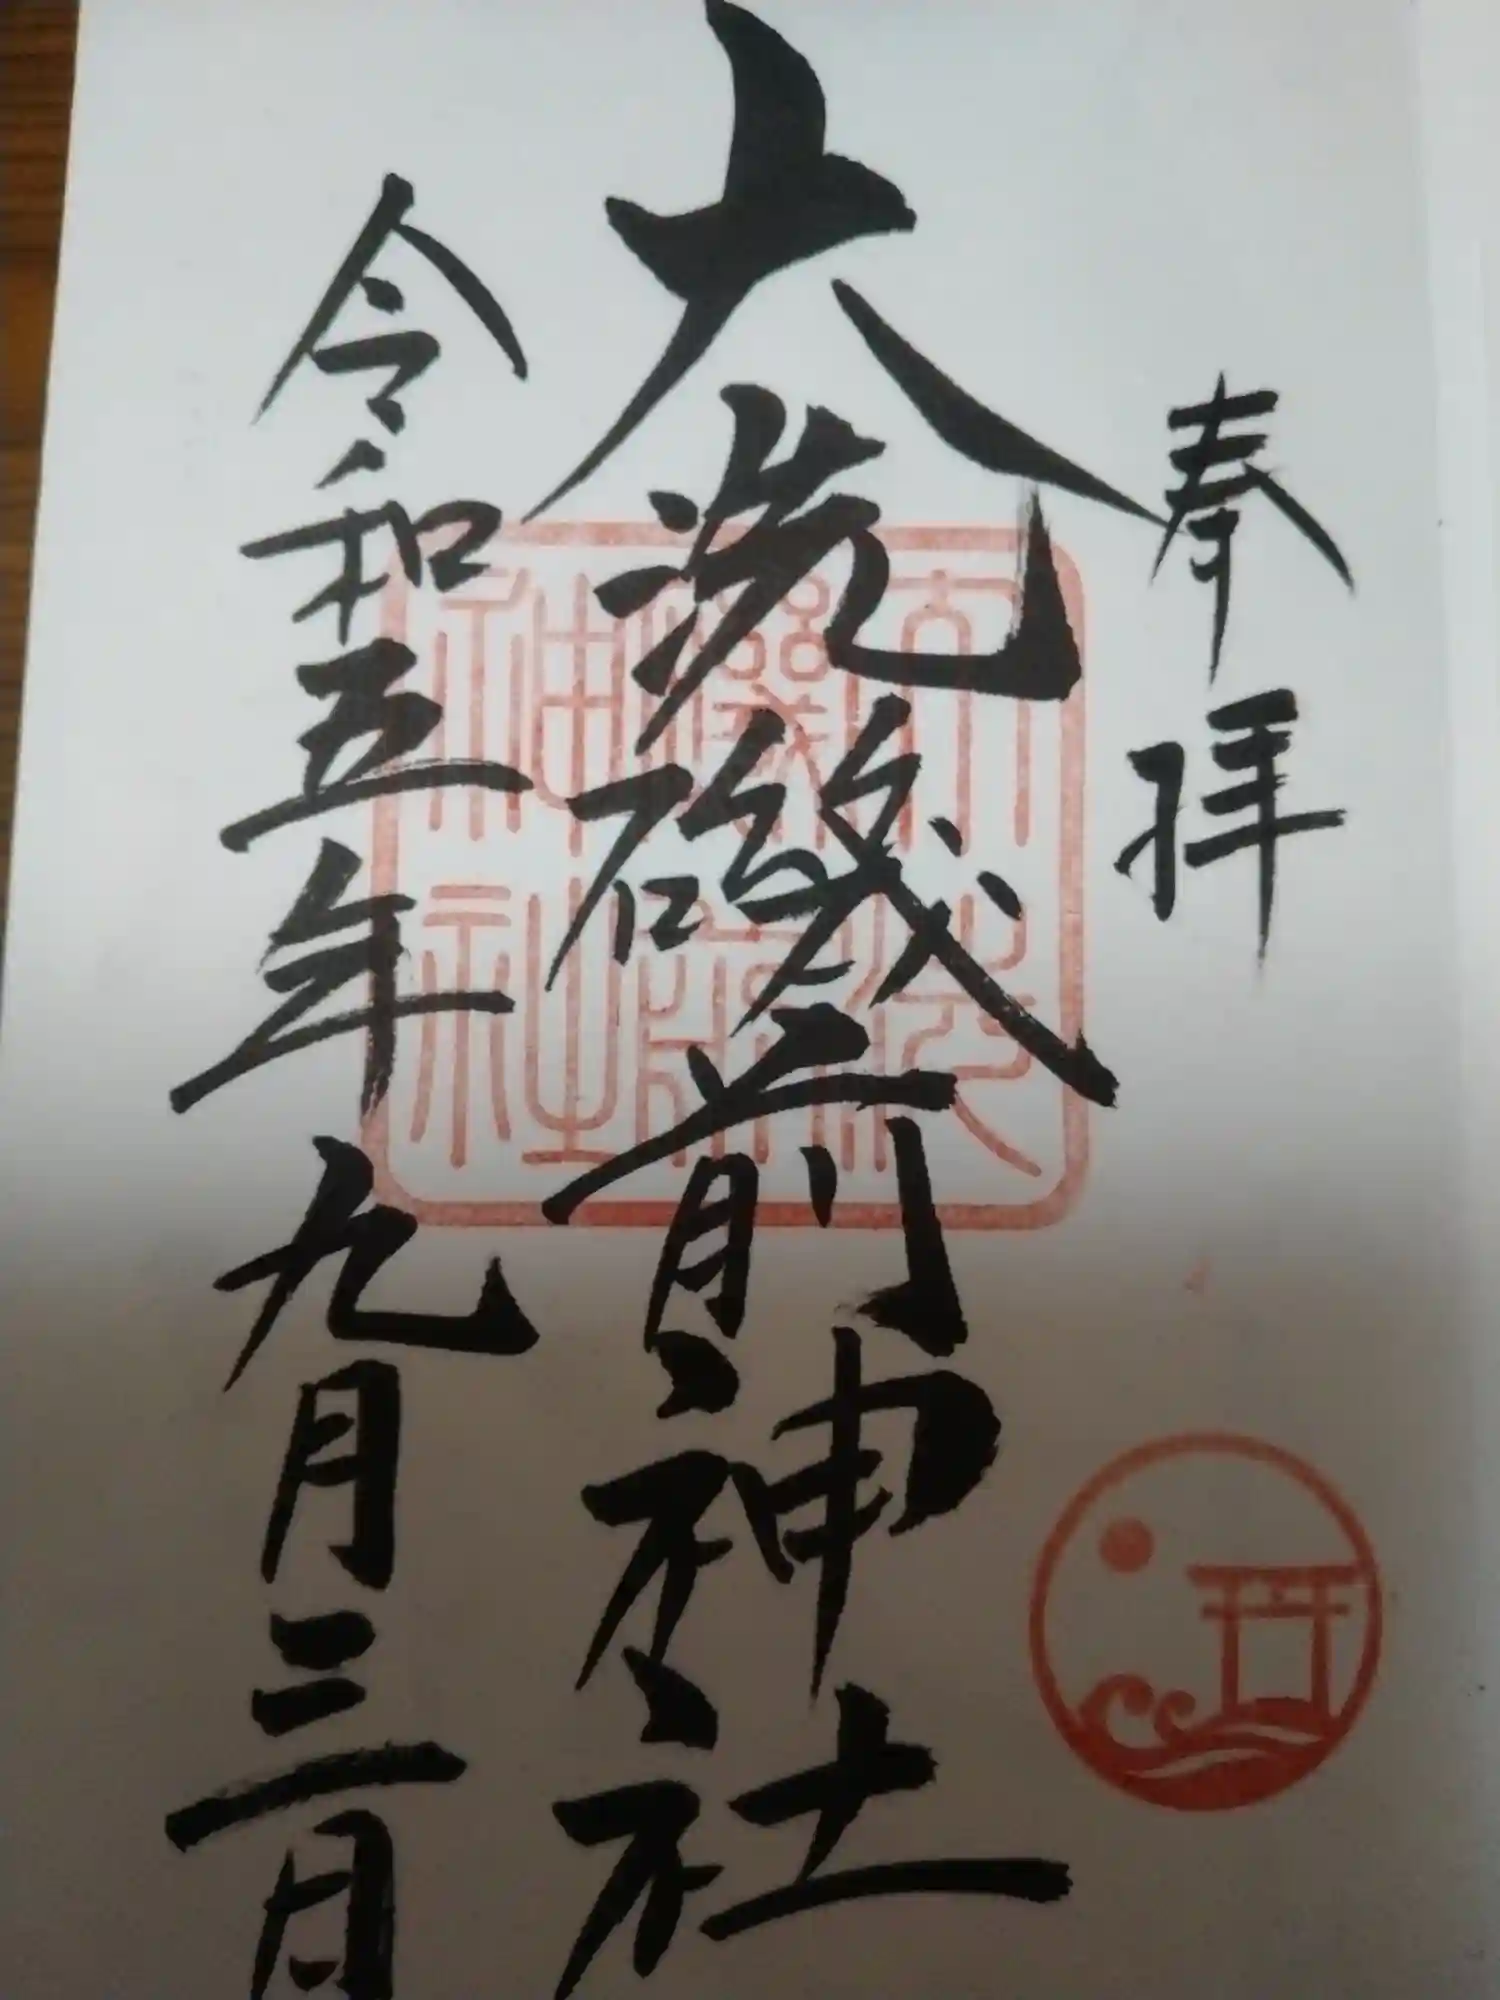 奉拝
大洗磯前神社
令和五年九月三日
大洗
磯前
神社